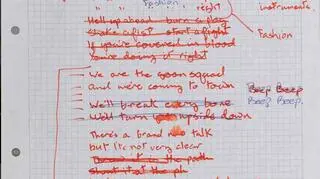 Fashion
" " " right instruments.
Hell up ahead burn a flag
Shake a fist start a fight Fashion
If you're covered in blood
You're doing it right
We are the goon squad
and we're coming to town Beep Beep
We'll break every bone Beep Beep.
We'll turn upside down
There's a brand new talk
but it's not very clear
it in the
Shout it at the